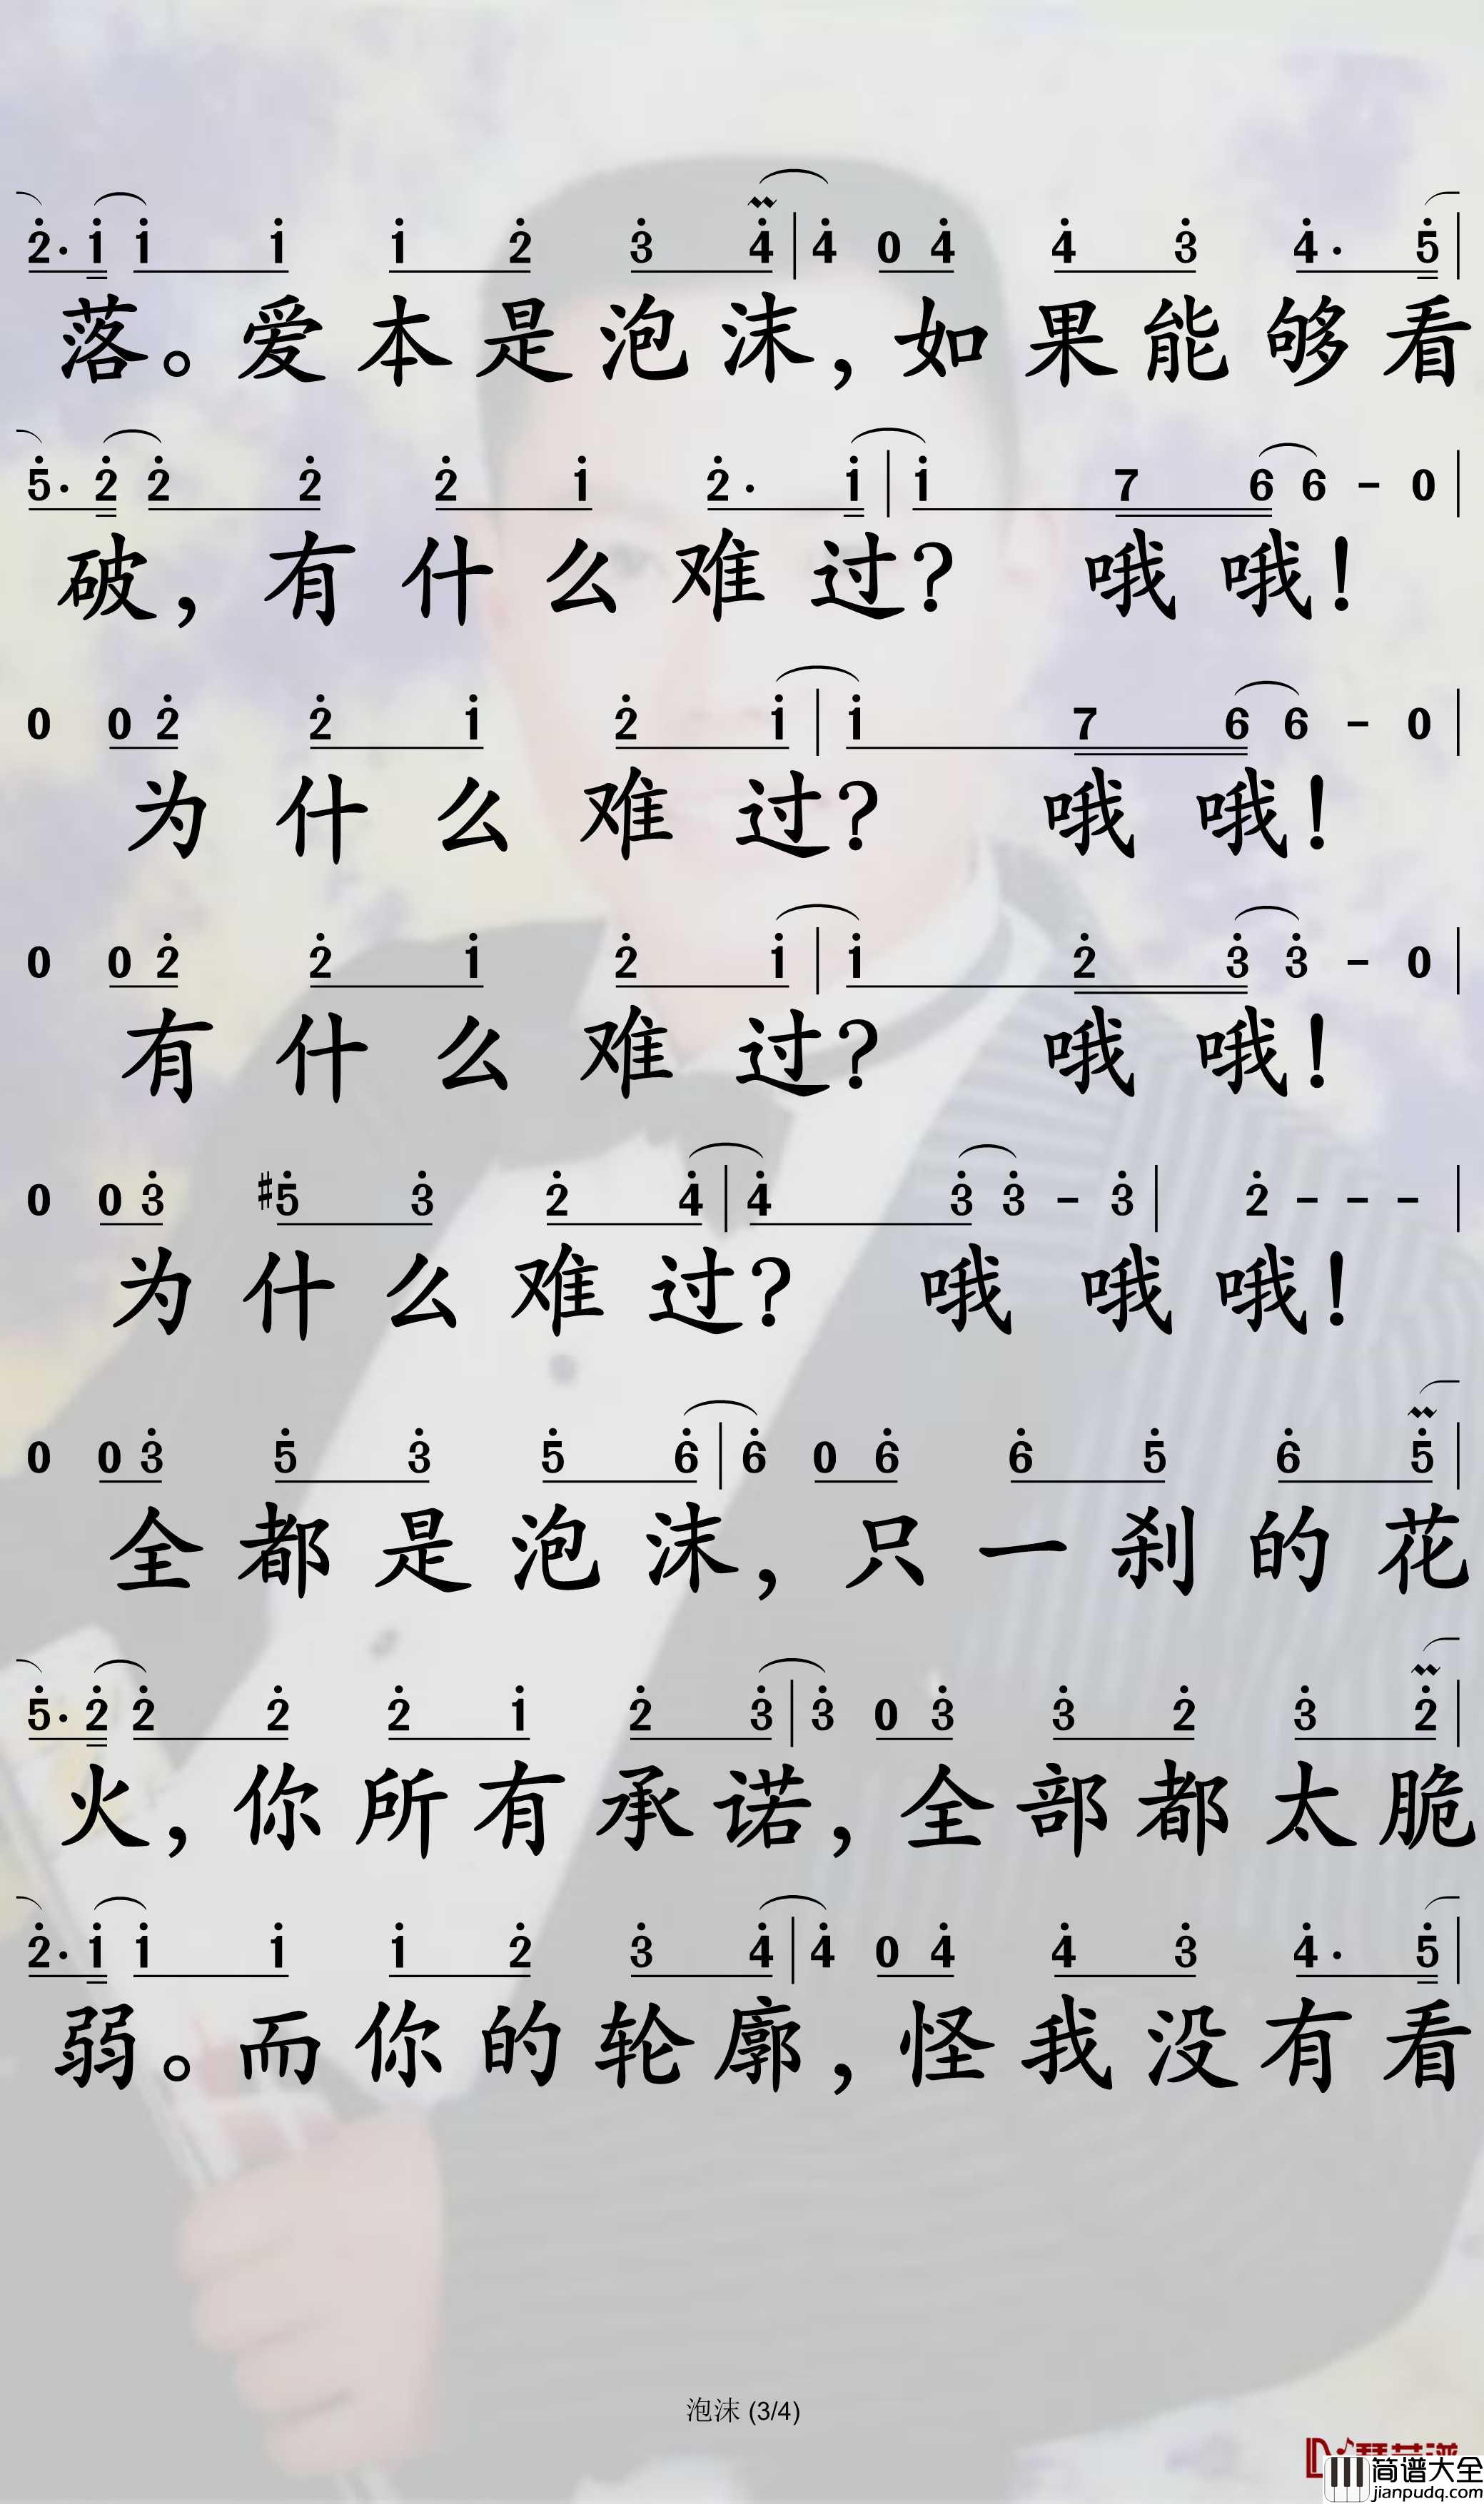 2· 1 1 1 1 2 3 4 | 4 0 4 4 3 4· 5 |
落。爱本是泡沫，如果能够看
5· 2 2 2 2 1 2· 1 | 1 7 6 6 - 0 |
破，有什么难过？ 哦哦！
0 0 2 2 1 2 1 | 1 7 6 6 - 0 |
为什么难过？ 哦哦！
0 0 2 2 1 2 1 | 1 2 3 3 - 0 |
有什么难过？ 哦哦！
0 0 3 #5 3 2 4 | 4 3 3 - 3 | 2 - - - |
为什么难过？ 哦哦哦！
0 0 3 5 3 5 6 | 6 0 6 6 5 6 5 |
全都是泡沫，只一刹的花
5· 2 2 2 2 1 2 3 | 3 0 3 3 2 3 2 |
火，你所有承诺，全部都太脆
2· 1 1 1 1 2 3 4 | 4 0 4 4 3 4· 5 |
弱。而你的轮廓，怪我没有看
泡沫 (3/4)
简谱大全
jianpudq.com